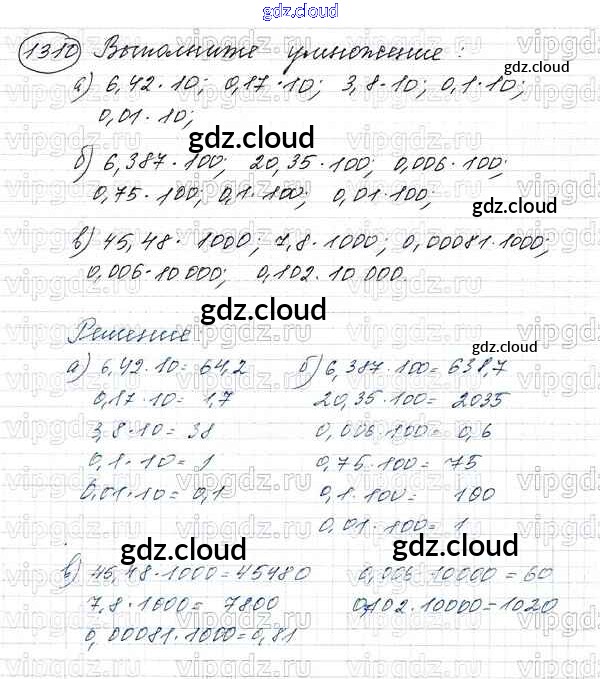 gdz.cloud
1310 Выполните умножение:
а) 6,42·10; 0,17·10; 3,8·10; 0,1·10;
0,01·10;
б) 6,387·100; 20,35·100; 0,006·100;
0,75·100; 0,1·100; 0,01·100;
в) 45,48·1000; 7,8·1000; 0,00081·1000;
0,006·10000; 0,102·10000.
Решение
а) 6,42·10=64,2
0,17·10=1,7
3,8·10=38
0,1·10=1
0,01·10=0,1
б) 6,387·100=638,7
20,35·100=2035
0,006·100=0,6
0,75·100=75
0,1·100=100
0,01·100=1
в) 45,48·1000=45480
7,8·1000=7800
0,00081·1000=0,81
0,006·10000=60
0,102·10000=1020
gdz.cloud
gdz.cloud
gdz.cloud
gdz.cloud
gdz.cloud
gdz.cloud
gdz.cloud